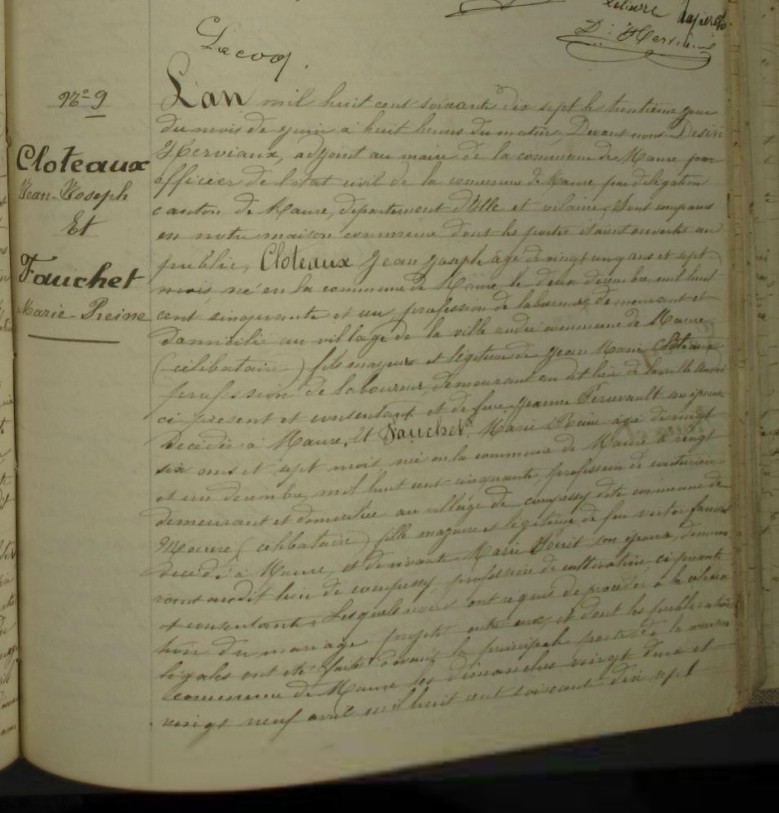 Lecoq.
D. Herviaux
N° 9
Cloteaux
Jean-Joseph
Et
Fauchet
Marie-Reine
L'an mil huit cent soixante dix sept le trentième jour
du mois de juin à huit heures du matin, Devant nous Désiré
Herviaux, adjoint au maire de la commune de Maure
officier de l'état civil de la commune de Maure par délégation
canton de Maure, département d'Ille et vilaine, Sont comparus
en notre maison commune dont les portes étaient ouvertes au
public, Cloteaux Jean Joseph âgé de vingt cinq ans et sept
mois né en la commune de Maure le deux décembre mil huit
cent cinquante et un, profession de laboureur, demeurant et
domicilié au village de la ville commune de Maure
(célibataire) fils majeur et légitime de Jean Marie Cloteaux
profession de laboureur, demeurant au dit lieu de la ville
ci présent et consentant et de feue Jeanne son épouse
décédée à Maure, Et Fauchet Marie Reine âgée de vingt
six ans et sept mois, née en la commune de Maure le vingt
et un décembre mil huit cent cinquante, profession de
demeurant et domiciliée au village de dite commune de
Maure (célibataire) fille majeure et légitime de feu
décédé à Maure, et de vivante Marie son épouse,
au dit lieu de profession de cultivatrice, ci présente
et consentante. Lesquels nous ont requis de procéder à la célébra
tion du mariage projeté entre eux, et dont les publications
légales ont été faites devant la principale porte de la
commune de Maure les dimanches vingt deux et
vingt neuf avril mil huit cent soixante dix sept